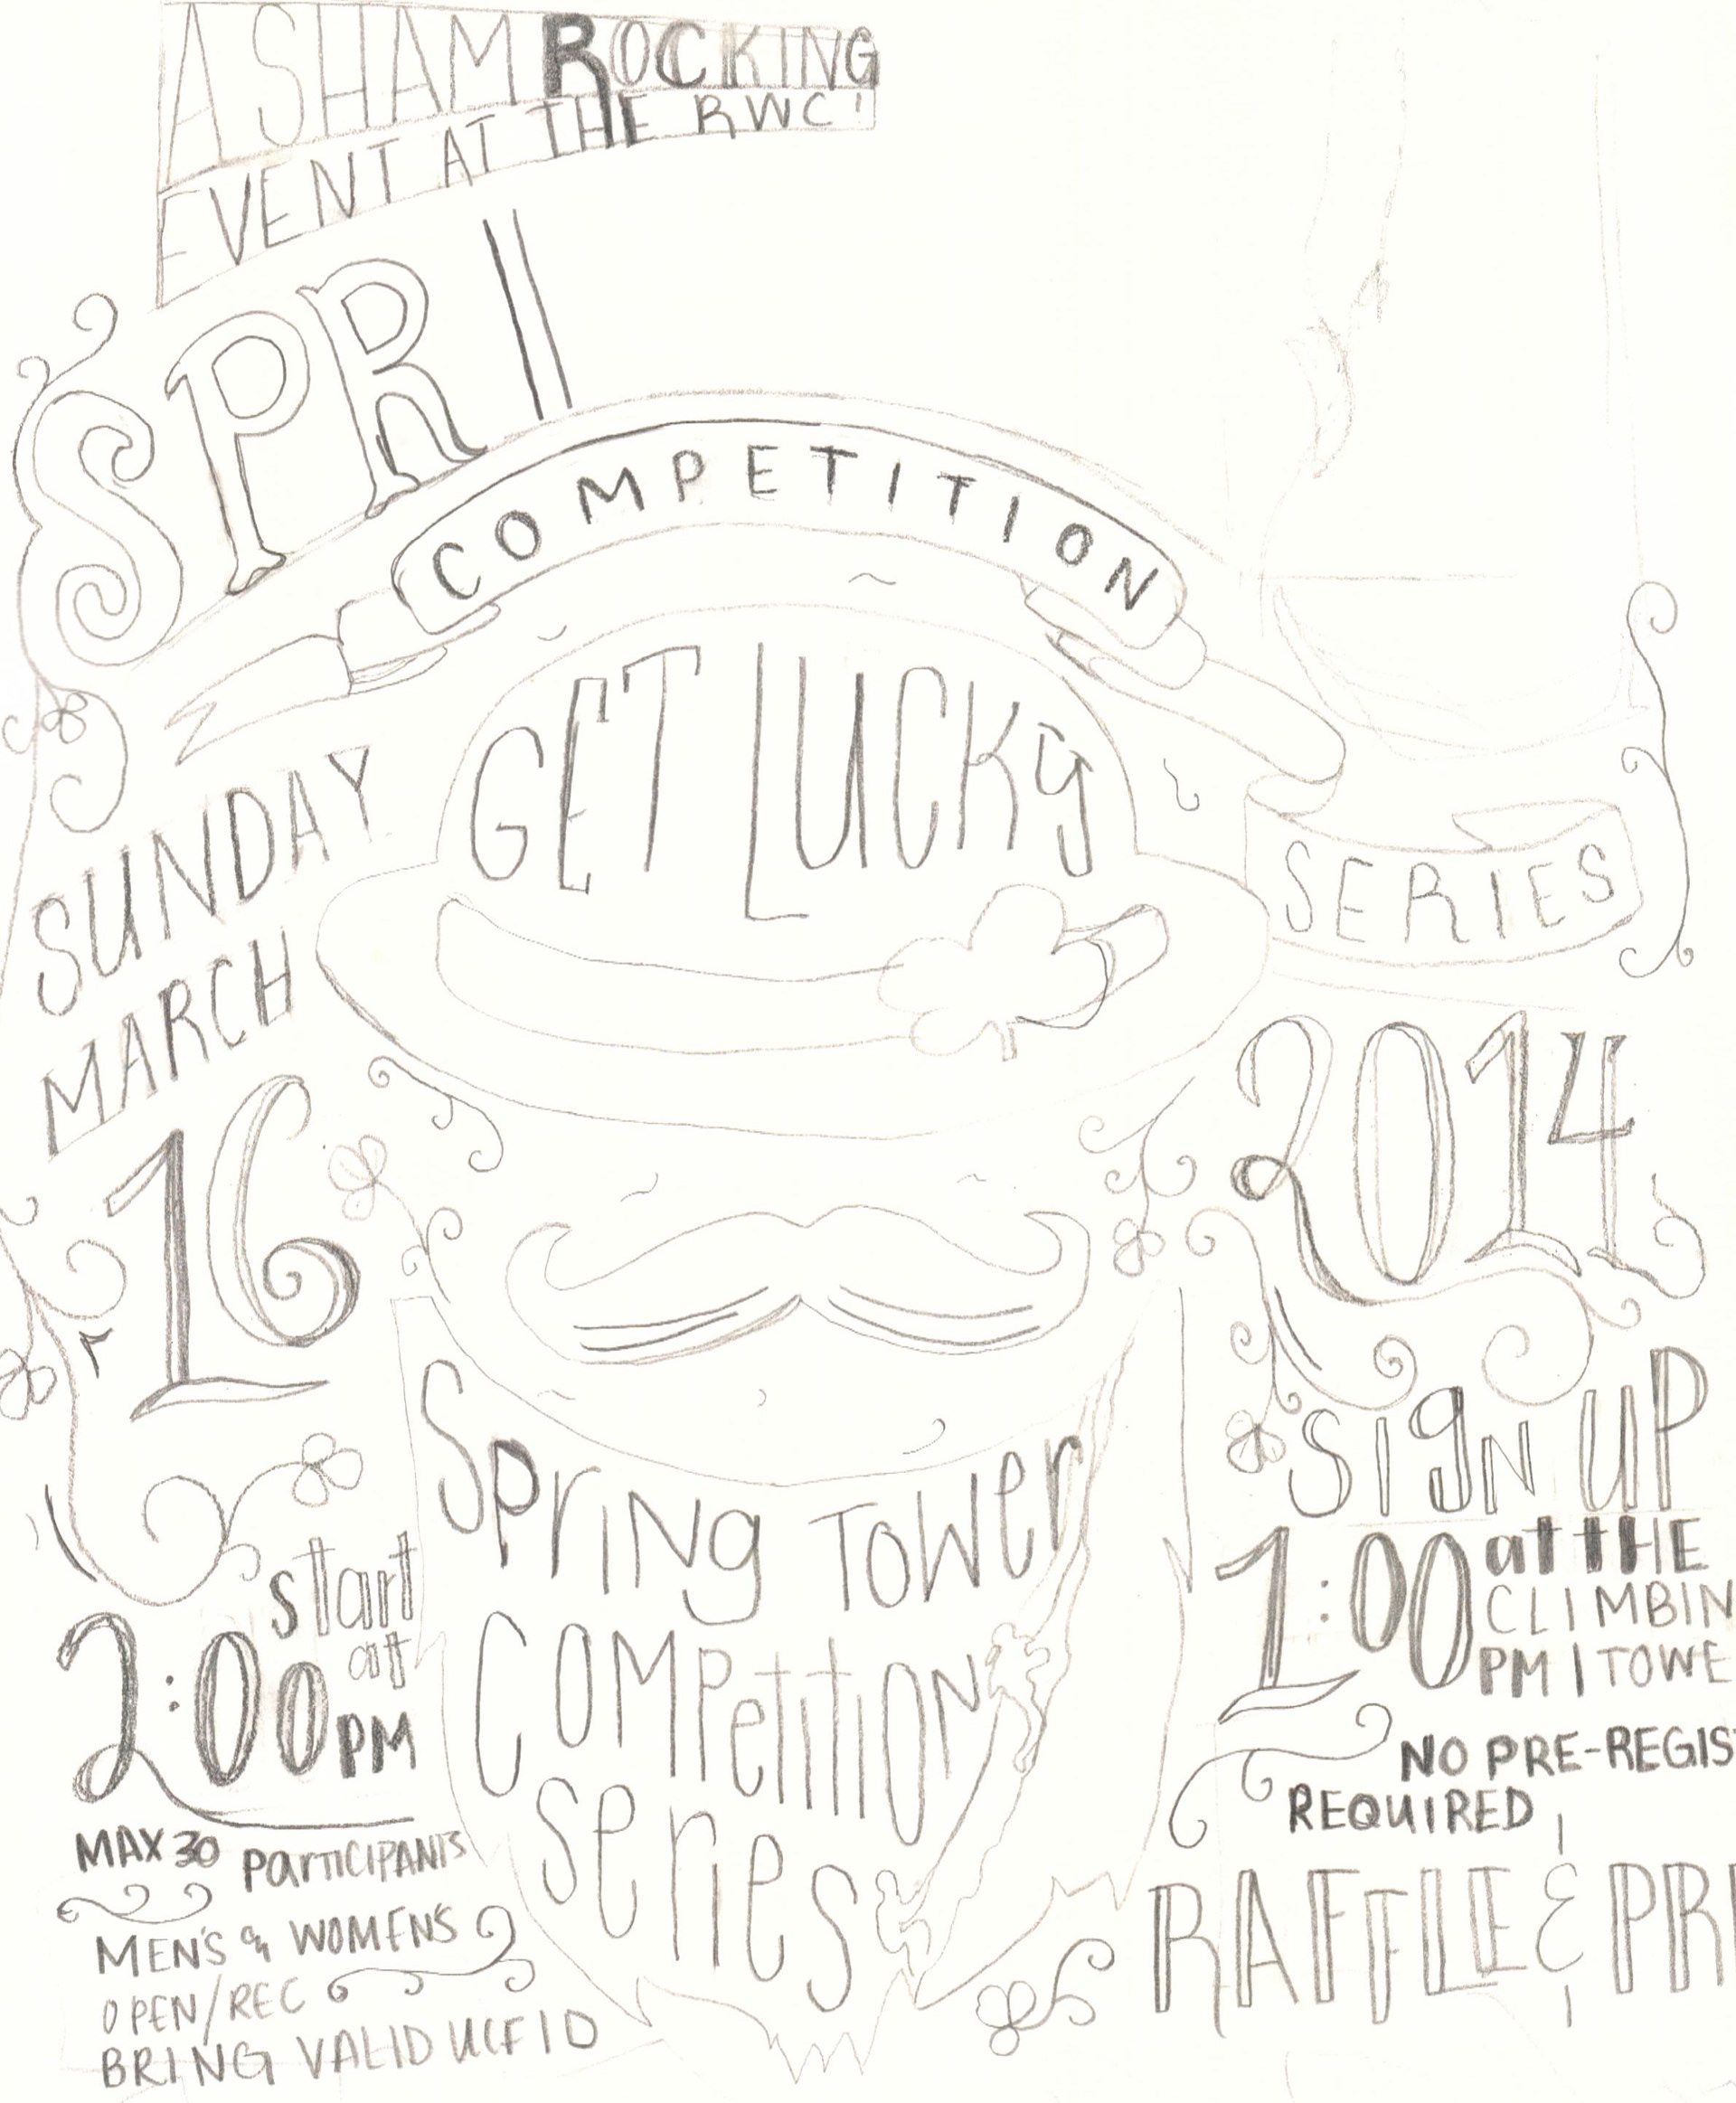 A SHAMROCKING
EVENT AT THE RWC!
SPRI
COMPETITION
SERIES
GET LUCKY
SUNDAY
MARCH
16
2014
Spring Tower
Competition
Series
SIGN UP
1:00 PM at tHE
CLIMBIN
TOWE
NO PRE-REGIS
REQUIRED
RAFFLE & PRI
start
at
2:00 PM
MAX 30 PARTICIPANTS
MEN'S & WOMEN'S
OPEN/REC
BRING VALID UCF ID